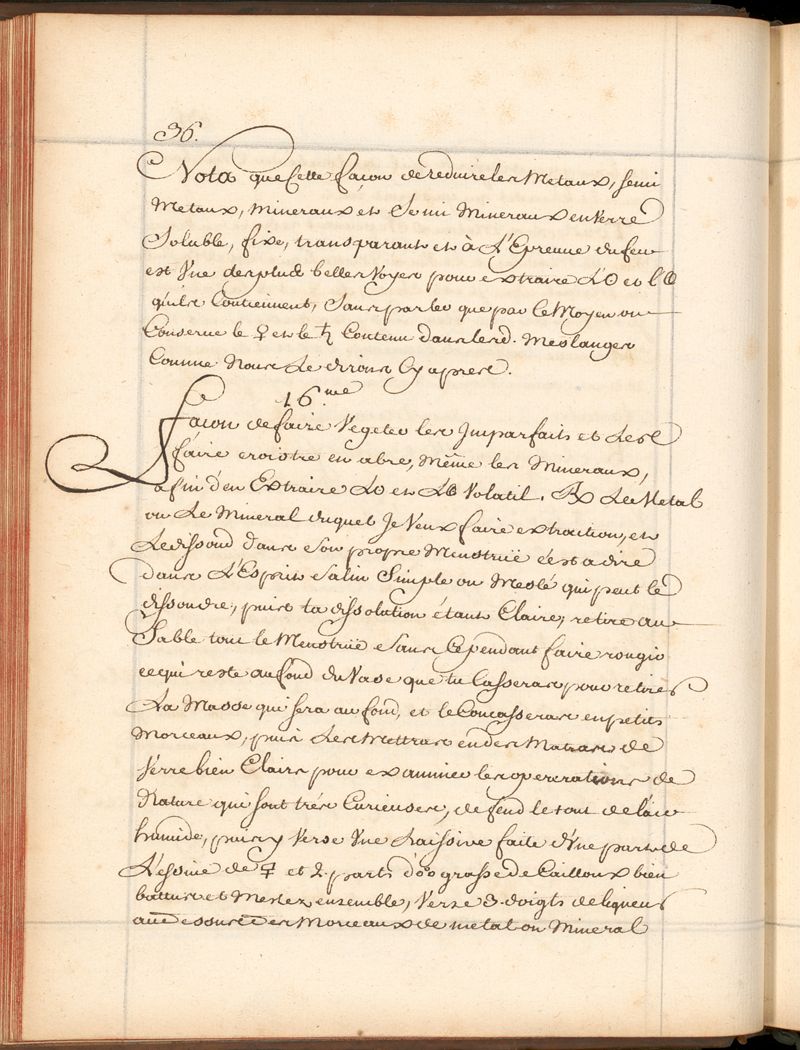 36.
Nota que Cette façon de reduire les Metaux, semi
Metaux, mineraux et Semi Mineraux en Verre
Soluble, fixe, transparant et à L'Epreuue du feu
est Vne des plus belles Voyes pour extraire
qu'ils Contiennent, Sans parler que par le Moyen on
Conserue le ♀ et le ♄ Contenu dans lesd. Meslanges
Comme Nous Le dirons Cy apres.
16.me
façon de faire Vegeter les Jmparfaits et Les
faire croistre en abre, même les Mineraux,
afin d'en Extraire Volatil. Le Metal
ou Le Mineral duquel Je Veux faire extraction, et
Le dissond dans son propre Menstruë c'est a dire
dans L'Esprit Salin Simple ou Meslé qui peut le
dissoudre, puis ta dissolution étant Claire, retire au
Sable tout le Menstruë Sans Cependant faire rougir
ce qui reste au fond du Vase que tu Casseras pour retirer
La Masse qui sera au fond, et le Concasseras en petits
Morceaux, puis Les Mettras en des Matras de
Verre bien Clairs pour examiner les opererations de
Nature qui sont trés Curieuses, defend le tout de l'air
humide, puis y Verse Vne Laissive faite d'Vne part de
L'essive de et 2. parts d'oo grasse de Cailloux bien
battus et Meslez ensemble, Verse 3. doigts de liqueur
au dessus des Morceaux de metal ou Mineral